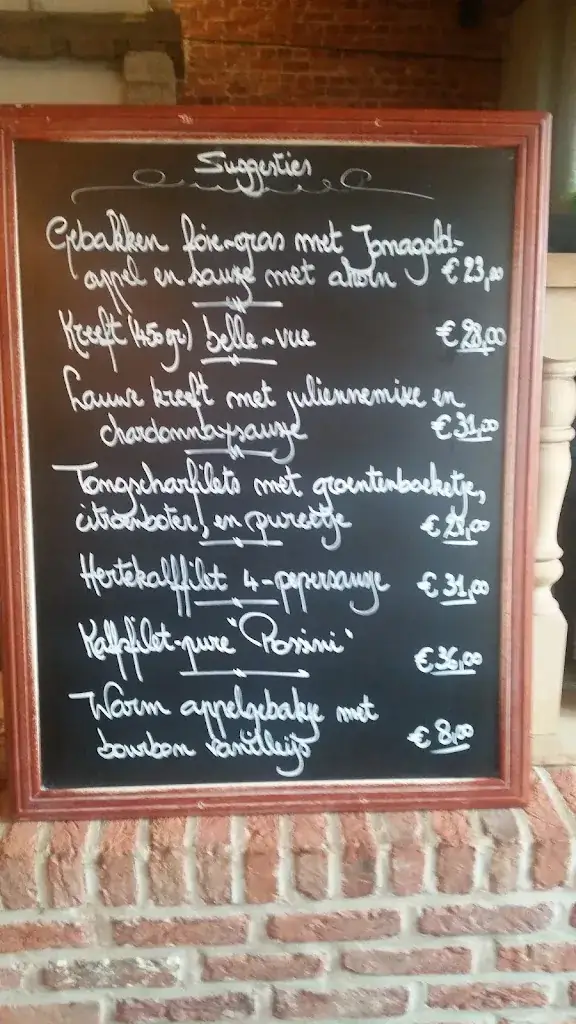 Suggesties
Gebakken foie-gras met Jonagold-
appel en sauze met ahorn € 23,00
Kreeft (450gr) belle-vue € 28,00
Lauwe kreeft met juliennemixe en
chardonnaysauze € 31,00
Tongscharfilets met groentenboeketje,
citroenboter, en pureetje €
Hertekalffilet 4-pepersauze € 31,00
Kalfsfilet-pure "Rossini" € 36,00
Warm appelgebakje met
bourbon vanilleijs € 8,00